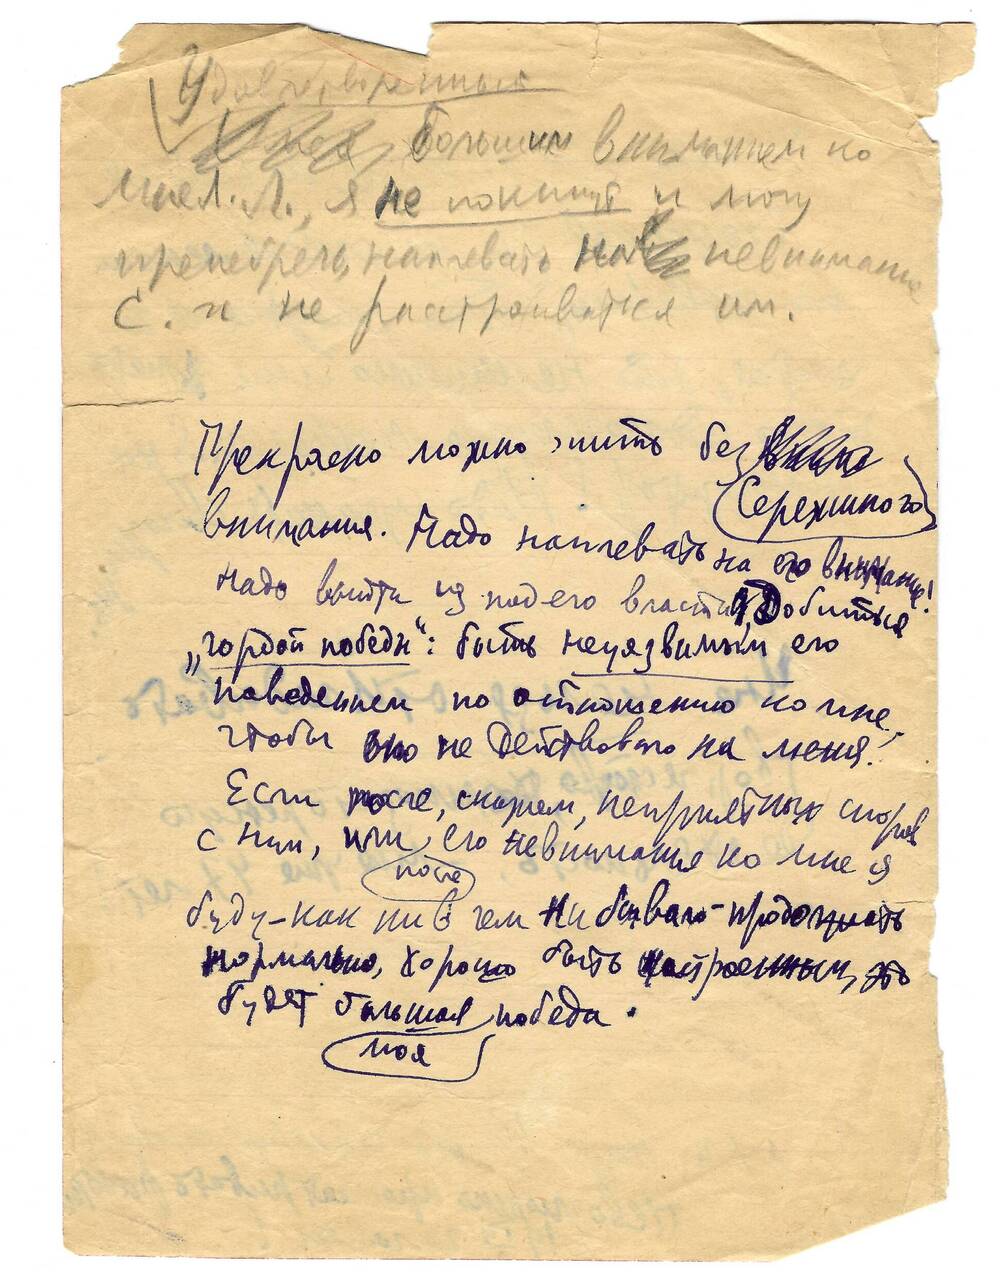 Удовлетворенный
большим вниманием ко
мне Л. Л., я не покинут и могу
пренебречь, наплевать на невнимание
С. и не расстраиваться им.
Прекрасно можно жить без
Сережиного
внимания. Надо наплевать на его внимание!
Надо выйти из под его власти, Добиться
„гордой победы“: быть неуязвимым его
поведением по отношению ко мне,
чтобы оно не действовало на меня.
Если после, скажем, неприятных споров
с ним, или его невнимания ко мне я
после
буду – как ни в чем ни бывало – продолжать
нормально, хорошо быть настроенным, это
будет большая победа.
моя